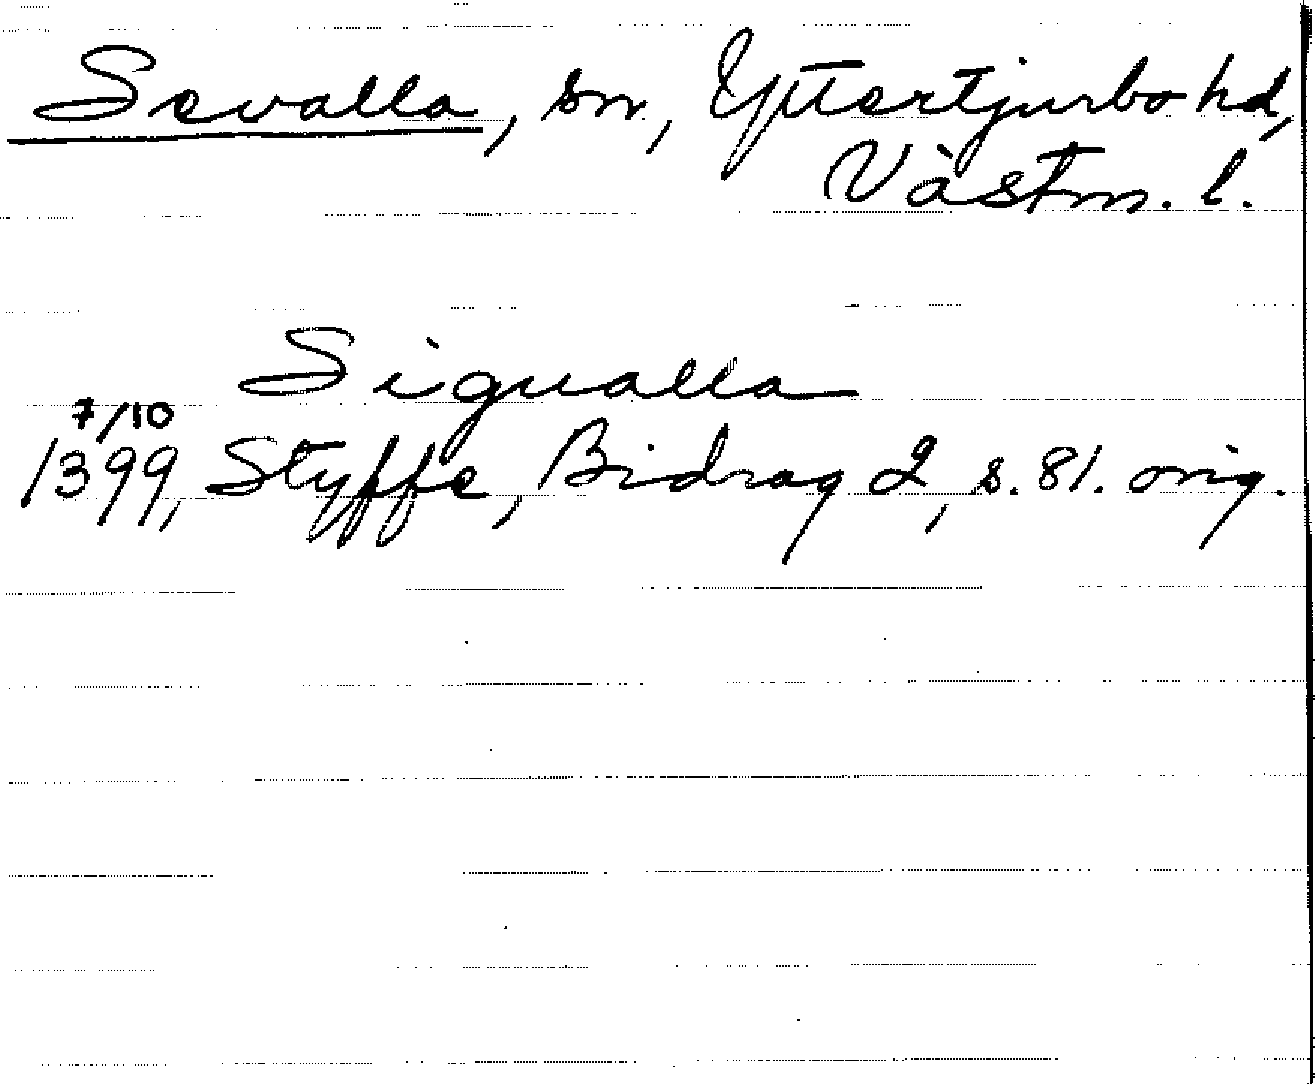 Sevalla, sn, Yttertjurbo hd,
Västm. l.
Sigualla
7/10
1399, Styffe, Bidrag 2, s. 81. orig.